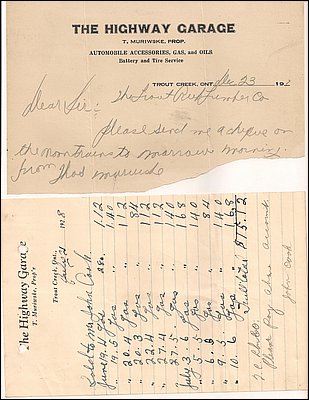 THE HIGHWAY GARAGE
T. MURIWSKE, PROP.
AUTOMOBILE ACCESSORIES, GAS, and OILS
Battery and Tire Service
TROUT CREEK, ONT. 23 191
Dear Sir:- The Trout Creek Lumber Co
Please send me a cheque on
the noon trains to marrow morning.
from Thos muriwske
The Highway Garage
T. Muriwske, Prop'r
Trout Creek, Ont., July 21 1928
Sold to Mr John Cook
June 19.4 Gas 28c 112
" 19.5 Gas " 140
" 20.4 Gas " 112
" 20.3 gas " 84
" 22.4 Gas " 112
" 27.4 Gas " 112
" 27.5 Gas " 140
July 3.6 Gas " 168
" 5.5 Gas " 140
" 6.3 Gas " 84
" 9.5 Gas " 140
" 10.6 Gas " 168
Full total $15.12
Please Pay above account
John Cook